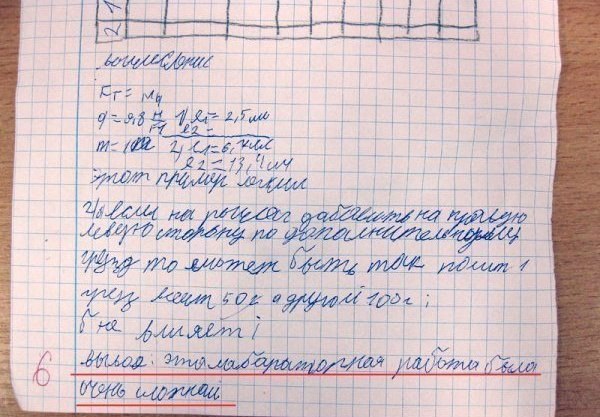 2 1
Вычесление
Fт= mg
g=9,8 Н 1) l1=2,5 см
l2=
m=100 2) l1=6,7 см
l2=13,4 см
этот пример легкий
если на рычаг добавить на правую
левую сторону по дополнительному
грузу то может быть так 1
груз весит 50г а другой 100г;
б не влияет;
6 вывод: эта лабараторная работа была
очень сложной